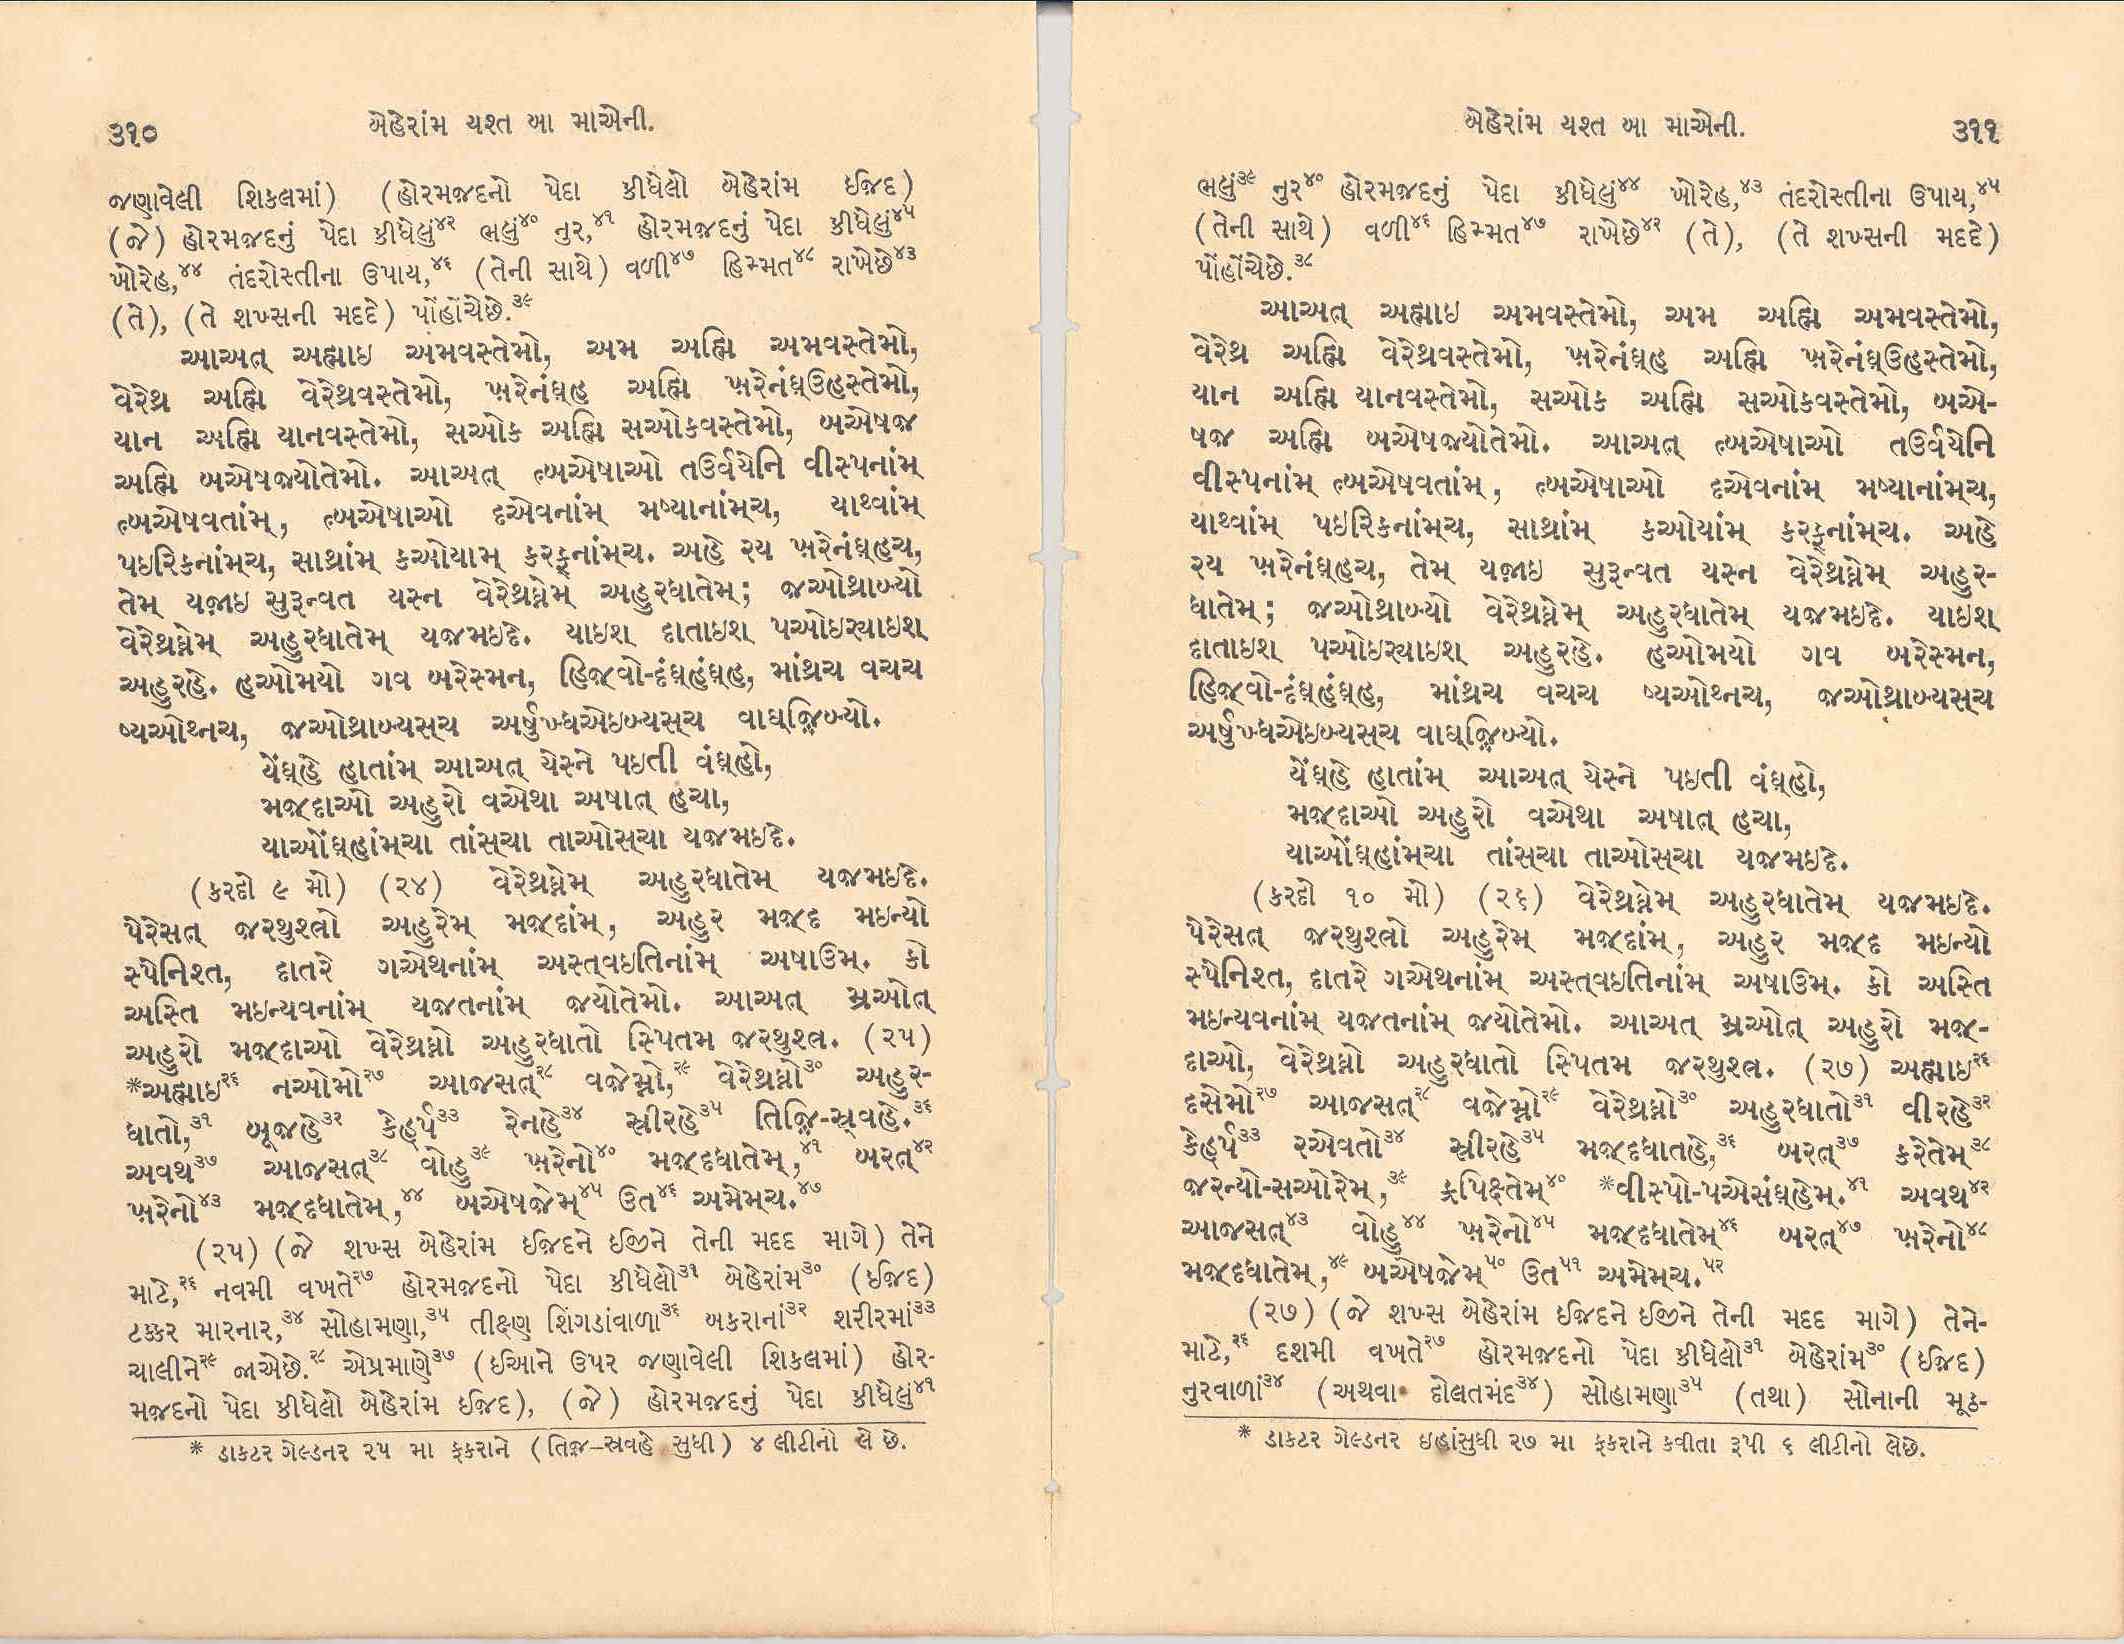 ૩૧૦
બેહેરાંમ યશ્ત બા માએની.
જણાવેલી શિકલમાં) (હોરમજ઼દનો પેદા કીધેલો બેહેરાંમ ઇજ઼દ)
(જે) હોરમજ઼દનું પેદા કીધેલું૪૨ ભલું૪૦ નુર,૪૧ હોરમજ઼દનું પેદા કીધેલું૪૫
ખોરેહ,૪૪ તંદરોસ્તીના ઉપાય,૪૬ (તેની સાથે) વળી૪૭ હિમ્મત૪૮ રાખેછે૪૩
(તે), (તે શખ્સની મદદે) પોંહોંચેછે.૩૯
આઅત્ અહ્માઇ અમવસ્તેમો, અમ અહ્મિ અમવસ્તેમો,
વેરેથ્ર અહ્મિ વેરેથ્રવસ્તેમો, ખ઼રેનંઘ઼્હ અહ્મિ ખ઼રેનંઘ઼્ઉહસ્તેમો,
યાન અહ્મિ યાનવસ્તેમો, સઓક અહ્મિ સઓકવસ્તેમો, બએષજ઼
અહ્મિ બએષજ઼યોતેમો. આઅત્ ત્બએષાઓ તઉર્વયેનિ વીસ્પનાંમ્
ત્બએષવતાંમ્, ત્બએષાઓ દએવનાંમ્ મષ્યાનાંમ્ચ, યાથ્વાંમ્
પઇરિકનાંમ્ચ, સાથ્રાંમ્ કઓયામ્ કરફ્નાંમ્ચ. અહે રય ખ઼રેનંઘ઼્હચ,
તેમ્ યજ઼ાઇ સુરૂન્વત યસ્ન વેરેથ્રઘ્નેમ્ અહુરધાતેમ્; જ઼ઓથ્રાબ્યો
વેરેથ્રઘ્નેમ્ અહુરધાતેમ્ યજ઼મઇદે. યાઇશ્ દાતાઇશ્ પઓઇર્યાઇશ્
અહુરહે. હઓમયો ગવ બરેસ્મન, હિજ઼્વો-દંઘ઼્હંઘ઼્હ, માંથ્રચ વચચ
ષ્યઓથ્નચ, જ઼ઓથ્રાબ્યસ્ચ અર્ષુખ્ધએઇબ્યસ્ચ વાઘ્જ઼િબ્યો.
યેંઘ઼્હે હાતાંમ્ આઅત્ યેસ્ને પઇતી વંઘ઼્હો,
મજ઼્દાઓ અહુરો વએથા અષાત્ હચા,
યાઓંઘ઼્હાંમ્ચા તાંસ્ચા તાઓસ્ચા યજ઼મઇદે.
(કરદો ૯ મો) (૨૪) વેરેથ્રઘ્નેમ્ અહુરધાતેમ્ યજ઼મઇદે.
પેરેસત્ જ઼રથુશ્ત્રો અહુરેમ્ મજ઼્દાંમ્, અહુર મજ઼્દ મઇન્યો
સ્પેનિશ્ત, દાતરે ગએથનાંમ્ અસ્ત્વઇતિનાંમ્ અષાઉમ્. કો
અસ્તિ મઇન્યવનાંમ્ યજ઼તનાંમ્ જ઼યોતેમો. આઅત્ મ્રઓત્
અહુરો મજ઼્દાઓ વેરેથ્રઘ્નો અહુરધાતો સ્પિતમ જ઼રથુશ્ત્ર. (૨૫)
*અહ્માઇ૨૬ નઓમો૨૭ આજસત્૨૮ વજ઼ેમ્નો,૨૯ વેરેથ્રઘ્નો૩૦ અહુર-
ધાતો,૩૧ બૂજહે૩૨ કેહ્ર્પ૩૩ રેનહે૩૪ સ્રીરહે૩૫ તિજ઼િ-સ્ર્વહે.૩૬
અવથ૩૭ આજસત્૩૮ વોહુ૩૯ ખ઼રેનો૪૦ મજ઼્દધાતેમ્,૪૧ બરત્૪૨
ખ઼રેનો૪૩ મજ઼્દધાતેમ્,૪૪ બએષજ઼ેમ્૪૫ ઉત૪૬ અમેમ્ચ.૪૭
(૨૫) (જે શખ્સ બેહેરાંમ ઇજ઼દને ઇજીને તેની મદદ માગે) તેને
માટે,૨૬ નવમી વખતે૨૭ હોરમજ઼દનો પેદા કીધેલો૩૧ બેહેરાંમ૩૦ (ઇજ઼દ)
ટક્કર મારનાર,૩૪ સોહામણા,૩૫ તીક્ષ્ણ શિંગડાંવાળા૩૬ બકરાનાં૩૨ શરીરમાં૩૩
ચાલીને૨૯ જાએછે.૨૮ એપ્રમાણે૩૭ (ઇઆને ઉપર જણાવેલી શિકલમાં) હોર-
મજ઼દનો પેદા કીધેલો બેહેરાંમ ઇજ઼દ), (જે) હોરમજ઼દનું પેદા કીધેલું૪૧
* ડાકટર ગેલ્ડનર ૨૫ મા ફકરાને (તિજ઼-સ્રવહે સુધી) ૪ લીટીનો લે છે.
બેહેરાંમ યશ્ત બા માએની.
૩૧૧
ભલું૩૯ નુર૪૦ હોરમજ઼દનું પેદા કીધેલું૪૪ ખોરેહ,૪૩ તંદરોસ્તીના ઉપાય,૪૫
(તેની સાથે) વળી૪૬ હિમ્મત૪૭ રાખેછે૪૨ (તે), (તે શખ્સની મદદે)
પોંહોંચેછે.૩૮
આઅત્ અહ્માઇ અમવસ્તેમો, અમ અહ્મિ અમવસ્તેમો,
વેરેથ્ર અહ્મિ વેરેથ્રવસ્તેમો, ખ઼રેનંઘ઼્હ અહ્મિ ખ઼રેનંઘ઼્ઉહસ્તેમો,
યાન અહ્મિ યાનવસ્તેમો, સઓક અહ્મિ સઓકવસ્તેમો, બએ-
ષજ઼ અહ્મિ બએષજ઼યોતેમો. આઅત્ ત્બએષાઓ તઉર્વયેનિ
વીસ્પનાંમ્ ત્બએષવતાંમ્, ત્બએષાઓ દએવનાંમ્ મષ્યાનાંમ્ચ,
યાથ્વાંમ્ પઇરિકનાંમ્ચ, સાથ્રાંમ્ કઓયાંમ્ કરફ્નાંમ્ચ. અહે
રય ખ઼રેનંઘ઼્હચ, તેમ્ યજ઼ાઇ સુરૂન્વત યસ્ન વેરેથ્રઘ્નેમ્ અહુર-
ધાતેમ્; જ઼ઓથ્રાબ્યો વેરેથ્રઘ્નેમ્ અહુરધાતેમ્ યજ઼મઇદે. યાઇશ્
દાતાઇશ્ પઓઇર્યાઇશ્ અહુરહે. હઓમયો ગવ બરેસ્મન,
હિજ઼્વો-દંઘ઼્હંઘ઼્હ, માંથ્રચ વચચ ષ્યઓથ્નચ, જ઼ઓથ્રાબ્યસ્ચ
અર્ષુખ્ધએઇબ્યસ્ચ વાઘ્જ઼િબ્યો.
યેંઘ઼્હે હાતાંમ્ આઅત્ યેસ્ને પઇતી વંઘ઼્હો,
મજ઼્દાઓ અહુરો વએથા અષાત્ હચા,
યાઓંઘ઼્હાંમ્ચા તાંસ્ચા તાઓસ્ચા યજ઼મઇદે.
(કરદો ૧૦ મો) (૨૬) વેરેથ્રઘ્નેમ્ અહુરધાતેમ્ યજ઼મઇદે.
પેરેસત્ જ઼રથુશ્ત્રો અહુરેમ્ મજ઼્દાંમ્, અહુર મજ઼્દ મઇન્યો
સ્પેનિશ્ત, દાતરે ગએથનાંમ્ અસ્ત્વઇતિનાંમ્ અષાઉમ્. કો અસ્તિ
મઇન્યવનાંમ્ યજ઼તનાંમ્ જ઼યોતેમો. આઅત્ મ્રઓત્ અહુરો મજ઼્-
દાઓ, વેરેથ્રઘ્નો અહુરધાતો સ્પિતમ જ઼રથુશ્ત્ર. (૨૭) અહ્માઇ૨૬
દસેમો૨૭ આજસત્૨૮ વજ઼ેમ્નો૨૯ વેરેથ્રઘ્નો૩૦ અહુરધાતો૩૧ વીરહે૩૨
કેહ્ર્પ૩૩ રએવતો૩૪ સ્રીરહે૩૫ મજ઼્દધાતહે,૩૬ બરત્૩૭ કરેતેમ્૩૮
જ઼રન્યો-સઓરેમ્,૩૯ ફ્રપિક્ષ્તેમ્૪૦ *વીસ્પો-પએસંઘ઼્હેમ્.૪૧ અવથ૪૨
આજસત્૪૩ વોહુ૪૪ ખ઼રેનો૪૫ મજ઼્દધાતેમ્૪૬ બરત્૪૭ ખ઼રેનો૪૮
મજ઼્દધાતેમ્,૪૯ બએષજ઼ેમ્૫૦ ઉત૫૧ અમેમ્ચ.૫૨
(૨૭) (જે શખ્સ બેહેરાંમ ઇજ઼દને ઇજીને તેની મદદ માગે) તેને-
માટે,૨૬ દશમી વખતે૨૭ હોરમજ઼દનો પેદા કીધેલો૩૧ બેહેરાંમ૩૦ (ઇજ઼દ)
નુરવાળાં૩૪ (અથવા દોલતમંદ૩૪) સોહામણા૩૫ (તથા) સોનાની મૂઠ-
* ડાકટર ગેલ્ડનર ઇહાંસુધી ૨૭ મા ફકરાને કવીતા રૂપી ૬ લીટીનો લેછે.